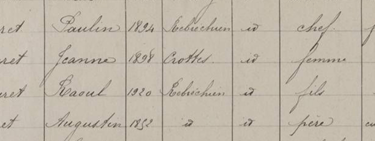 ret Paulin 1894 Rebréchien id chef
ret Jeanne 1898 Crottes id femme
ret Raoul 1920 Rebréchien id fils
ret Augustin 1852 id id père